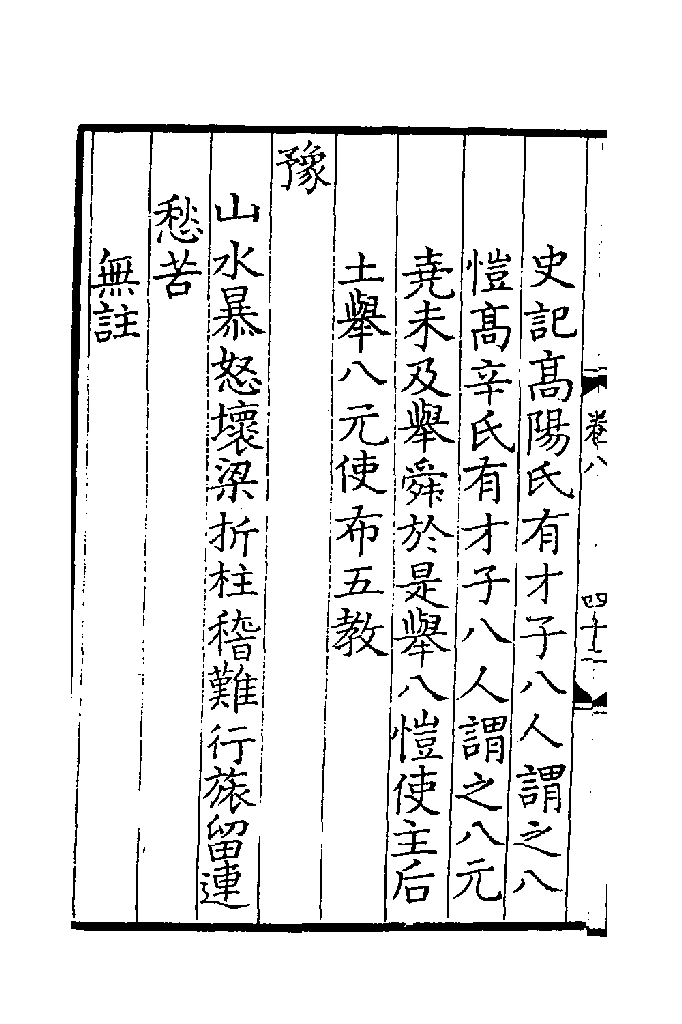 卷八
四十二
史記髙陽氏有才子八人謂之八
愷髙辛氏有才子八人謂之八元
堯未及舉舜於是舉八愷使主后
土舉八元使布五教
豫
山水暴怒壞梁折柱稽難行旅留連
愁苦
無註